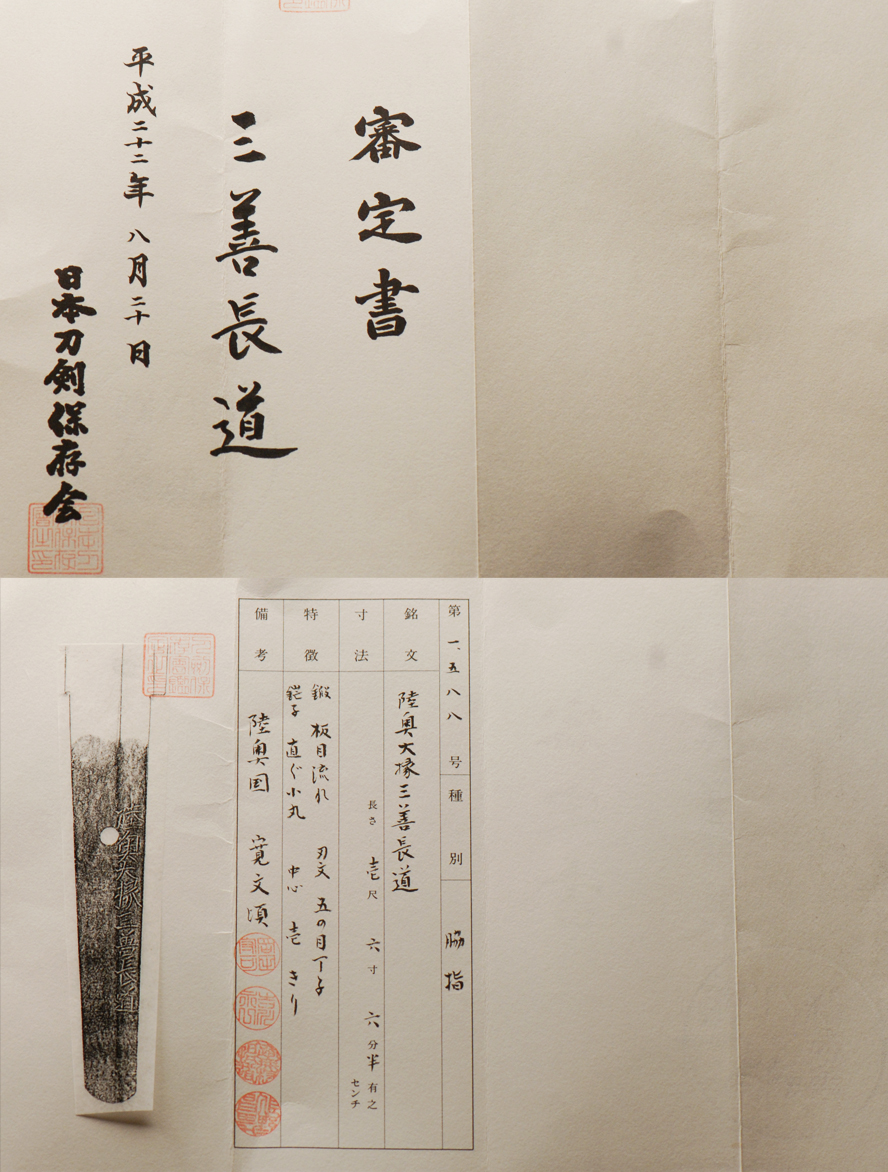 審定書
三善長道
平成二十二年 八月二十日
日本刀剣保存会
第一、五八八号 種別 脇指
銘文 陸奥大掾三善長道
寸法 長さ 壱尺 六寸 六分半 有之 センチ
特徴 鍛 板目流れ 刃文 五の目丁子
鎺子 直ぐ小丸 中心 壱 きり
備考 陸奥国 寛文頃
陸奥大掾三善長道